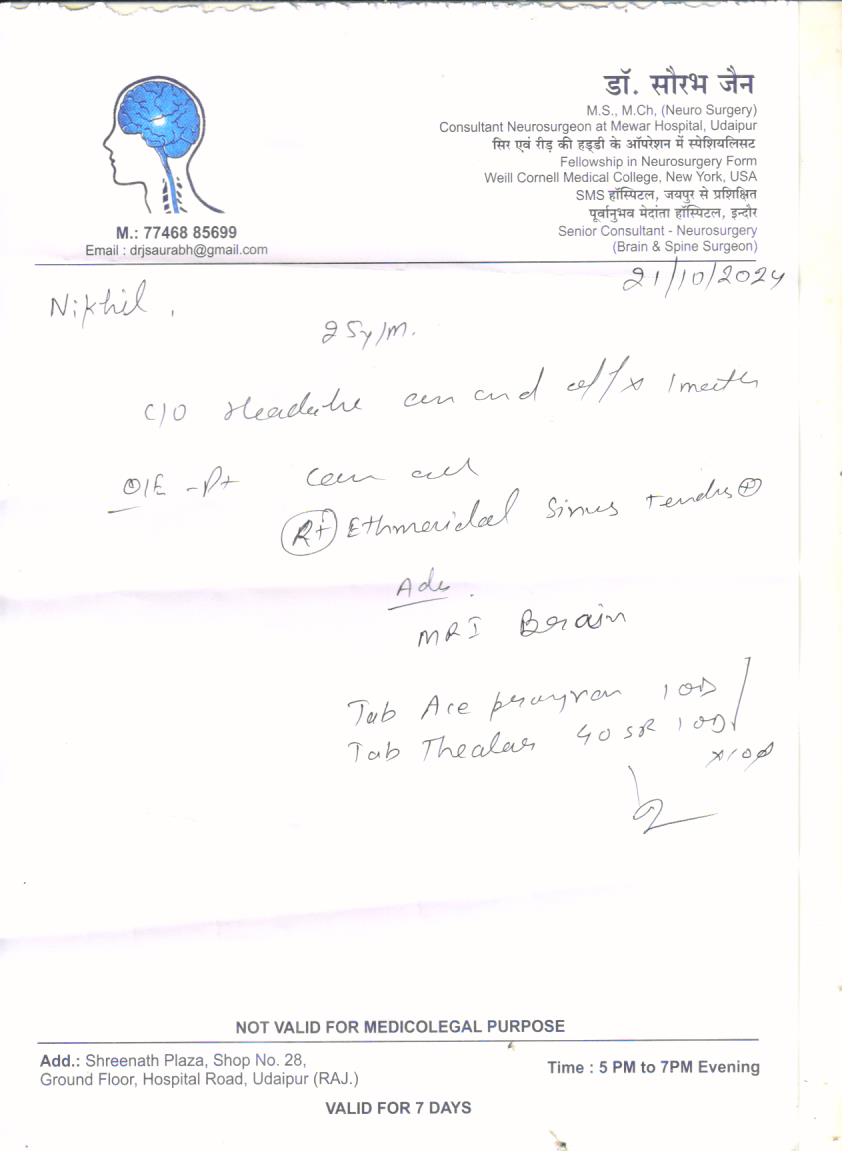 डॉ. सौरभ जैन
M.S., M.Ch, (Neuro Surgery)
Consultant Neurosurgeon at Mewar Hospital, Udaipur
सिर एवं रीड़ की हड्डी के ऑपरेशन में स्पेशियलिसट
Fellowship in Neurosurgery Form
Weill Cornell Medical College, New York, USA
SMS हॉस्पिटल, जयपुर से प्रशिक्षित
पूर्वानुभव मेदांता हॉस्पिटल, इन्दौर
Senior Consultant - Neurosurgery
(Brain & Spine Surgeon)
M.: 77468 85699
Email : drjsaurabh@gmail.com
21/10/2024
Nikhil
25y/M.
C/O Headache 1 month
O/E - Pt
Rt Ethmoidal Sinus
Adv.
MRI Brain
Tab Ace 1 OD
Tab 40 SR 1 OD
NOT VALID FOR MEDICOLEGAL PURPOSE
Add.: Shreenath Plaza, Shop No. 28,
Ground Floor, Hospital Road, Udaipur (RAJ.)
Time : 5 PM to 7PM Evening
VALID FOR 7 DAYS